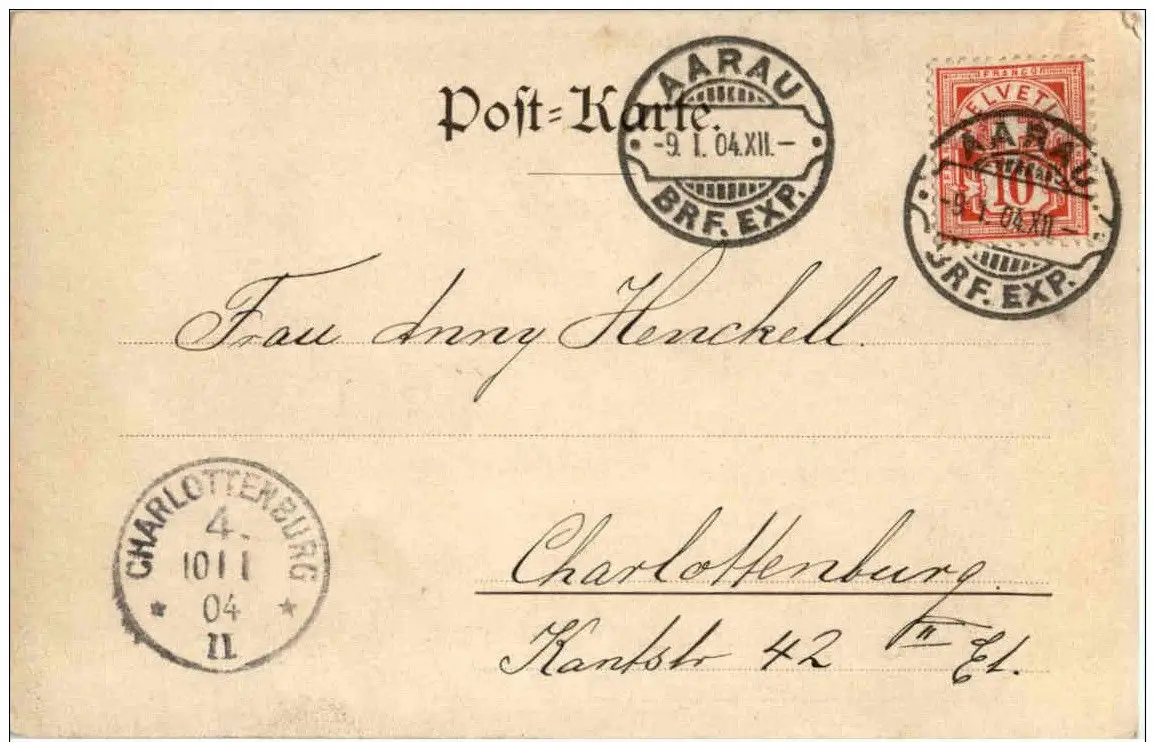 Post-Karte.
AARAU
-9. I. 04.XII.-
BRF. EXP.
FRANCO
HELVETIA
10
AARAU
-9. I. 04.XII.-
BRF. EXP.
Frau Anny Henckell.
CHARLOTTENBURG
4.
10 1 1
04
II.
Charlottenburg.
Kantstr 42 II Et.